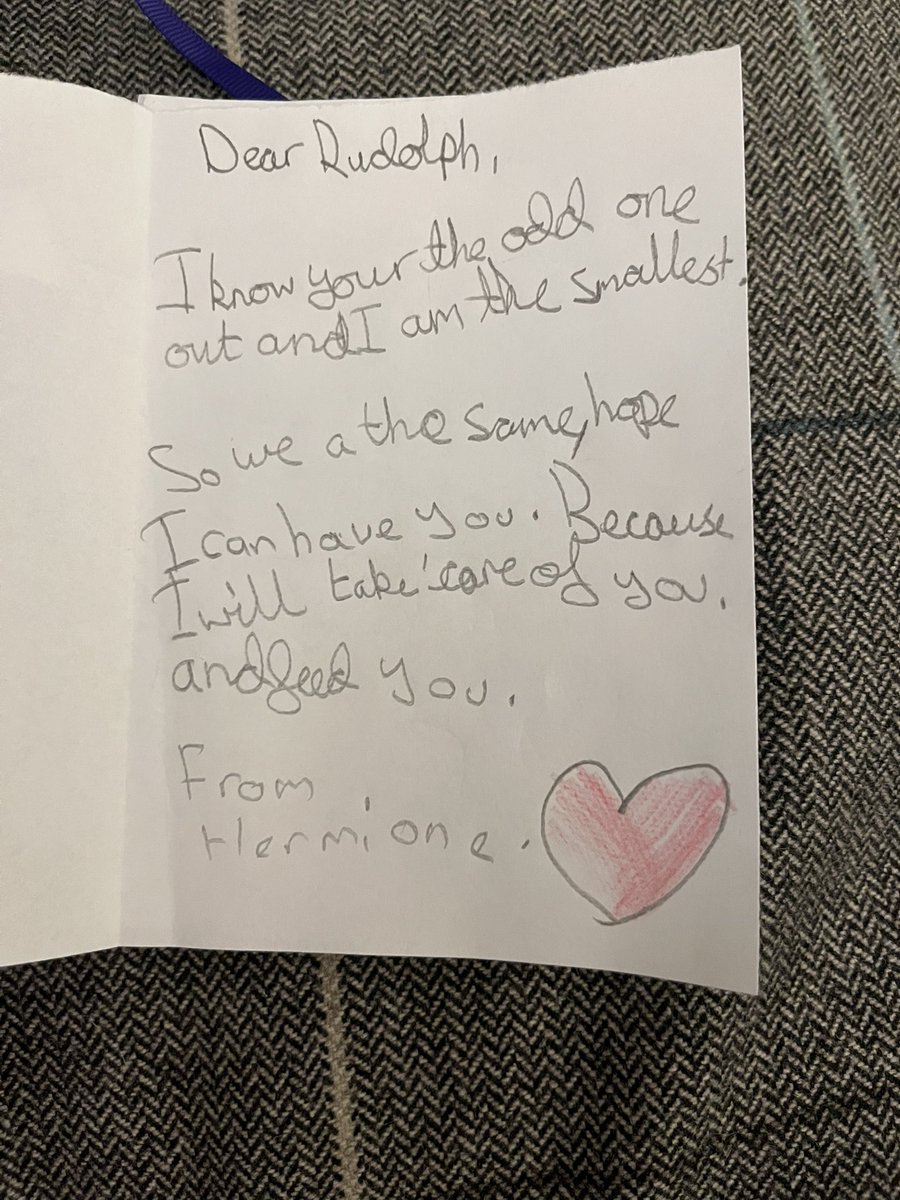 Dear Rudolph,
I know your the odd one
out and I am the smallest.
So we a the same, hope
I can have you. Because
I will take care of you.
and feed you.
From,
Hermione.